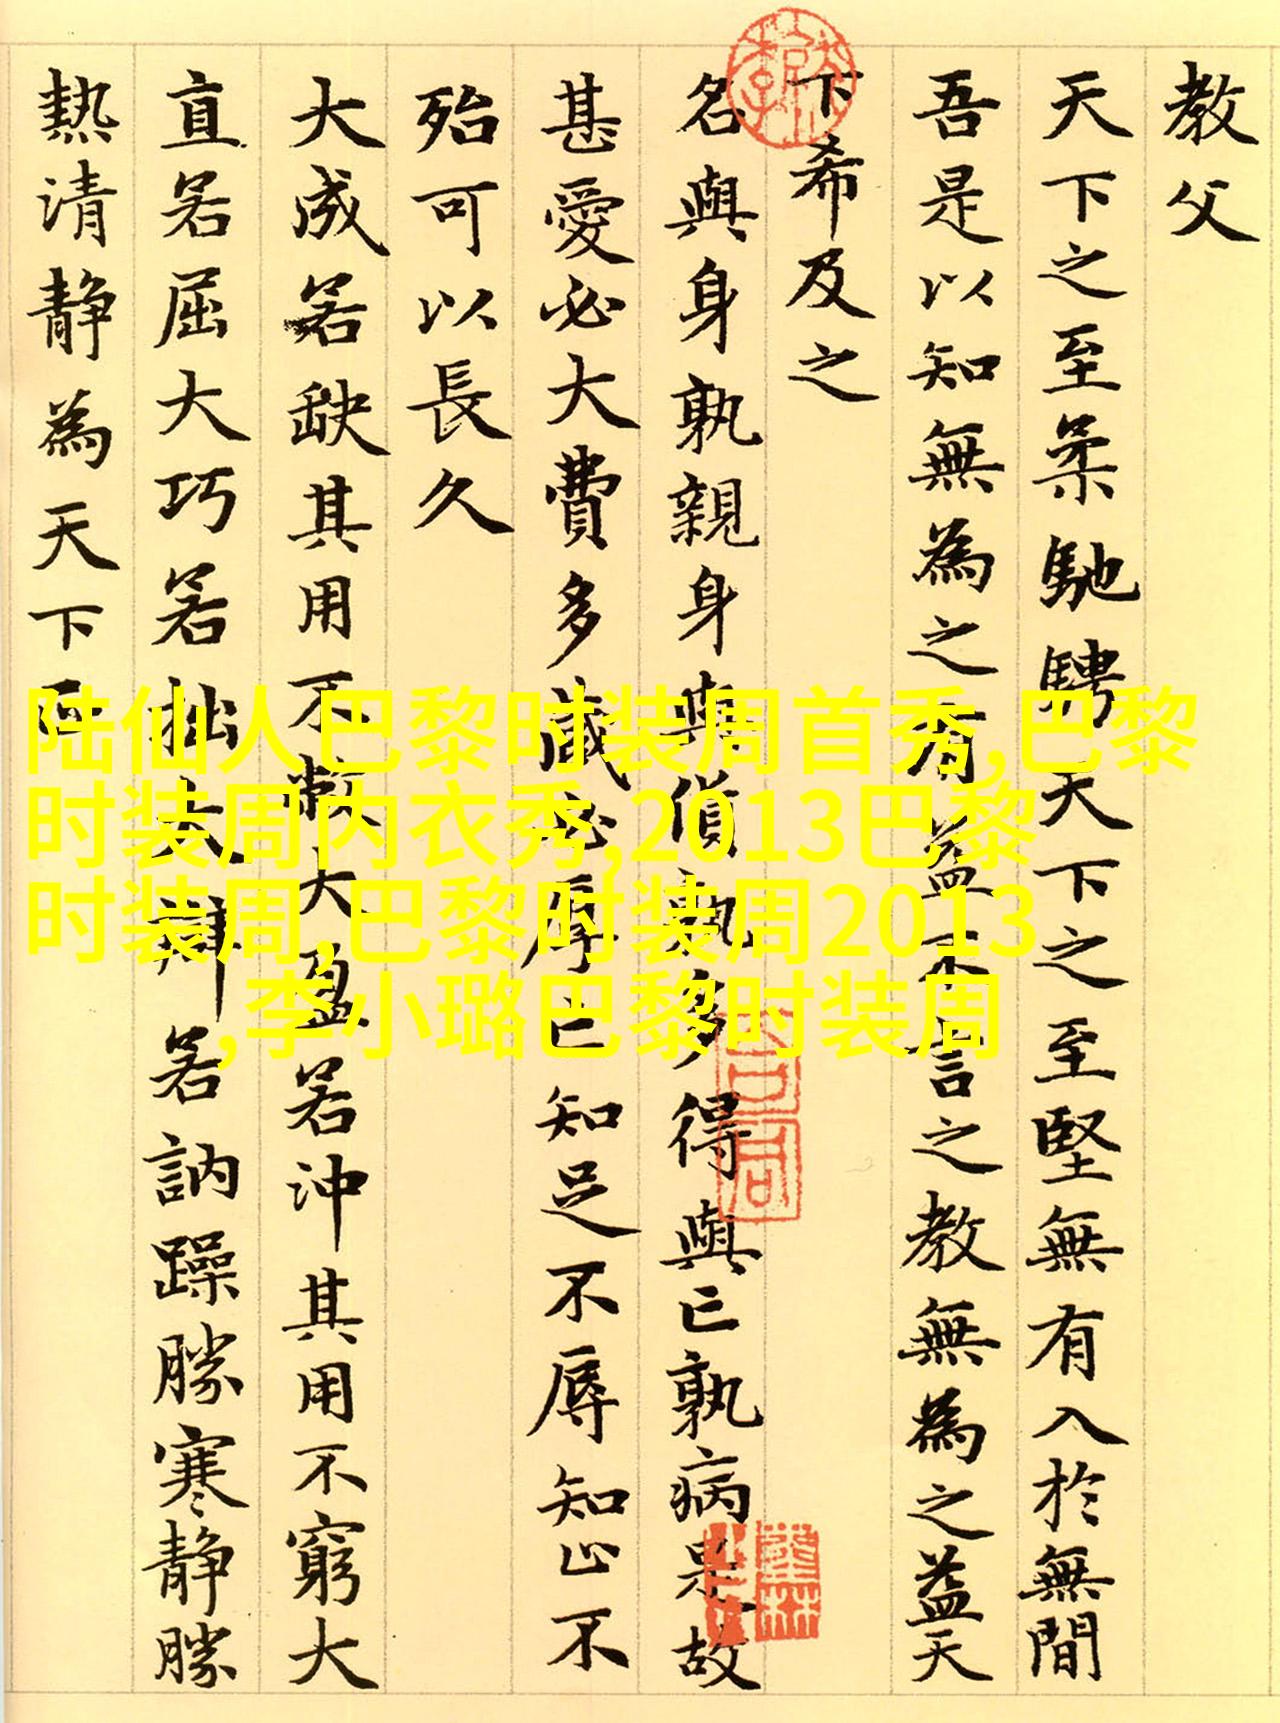 教父
天下之至柔馳騁天下之至堅無有入於無間
吾是以知無為之有益不言之教無為之益天
下希及之
名與身孰親身與貨孰多得與亡孰病是故
甚愛必大費多藏必厚亡知足不辱知止不
殆可以長久
大成若缺其用不敝大盈若沖其用不窮大
直若屈大巧若拙大辯若訥躁勝寒静勝
熱清静為天下正
陆仙人巴黎时装周首秀,巴黎
时装周内衣秀,2013巴黎
时装周,巴黎时装周2013
,李小璐巴黎时装周